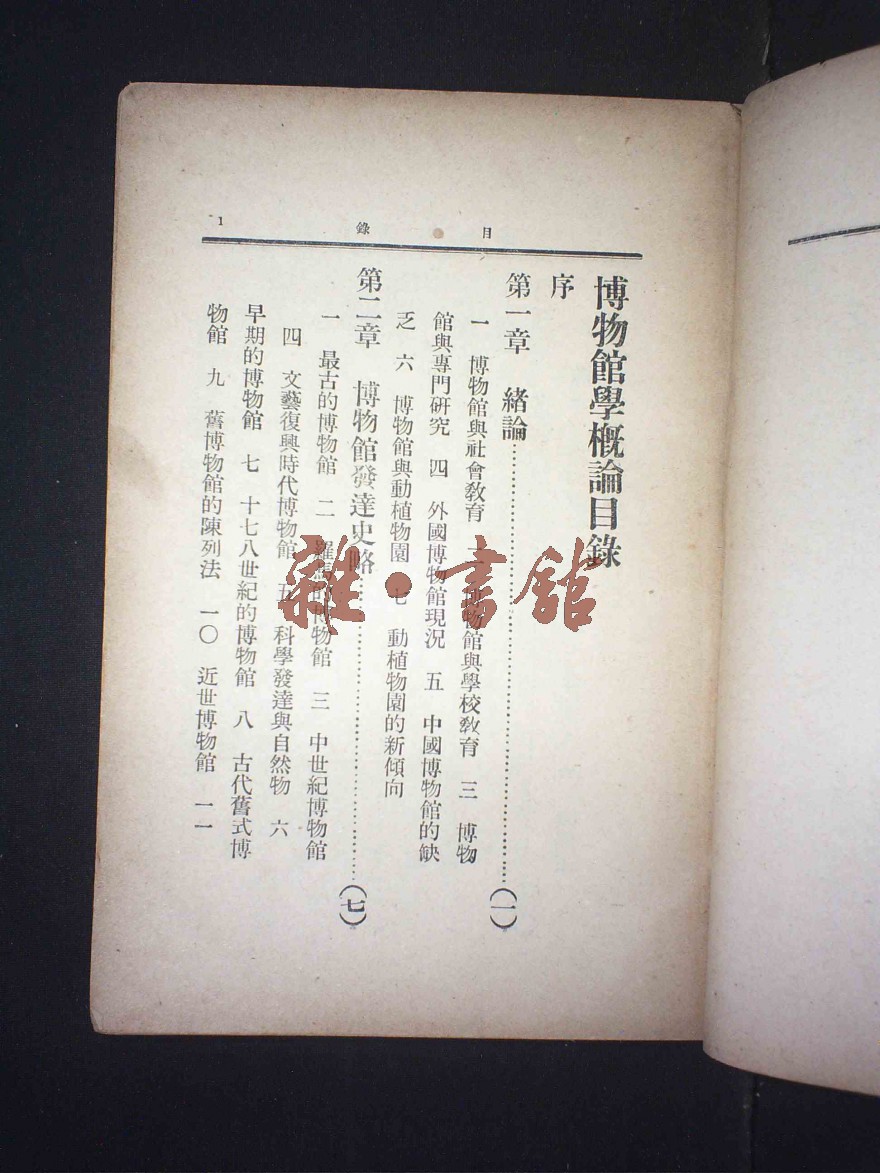 目錄
1
博物館學概論目錄
序
第一章 緒論……(一)
一 博物館與社會敎育 二 博物館與學校敎育 三 博物
館與專門研究 四 外國博物館現況 五 中國博物館的缺
乏 六 博物館與動植物園 七 動植物園的新傾向
第二章 博物館發達史略……(七)
一 最古的博物館 二 羅馬的博物館 三 中世紀博物館
四 文藝復興時代博物館 五 科學發達與自然物 六
早期的博物館 七 十七八世紀的博物館 八 古代舊式博
物館 九 舊博物館的陳列法 一〇 近世博物館 一一
雜·書館